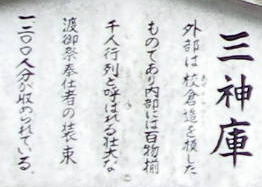 三神庫
外部は校倉造を模した
ものであり内部には百物揃
千人行列と呼ばれる壮大な
渡御祭奉仕者の装束
一二〇〇人分が収められている。